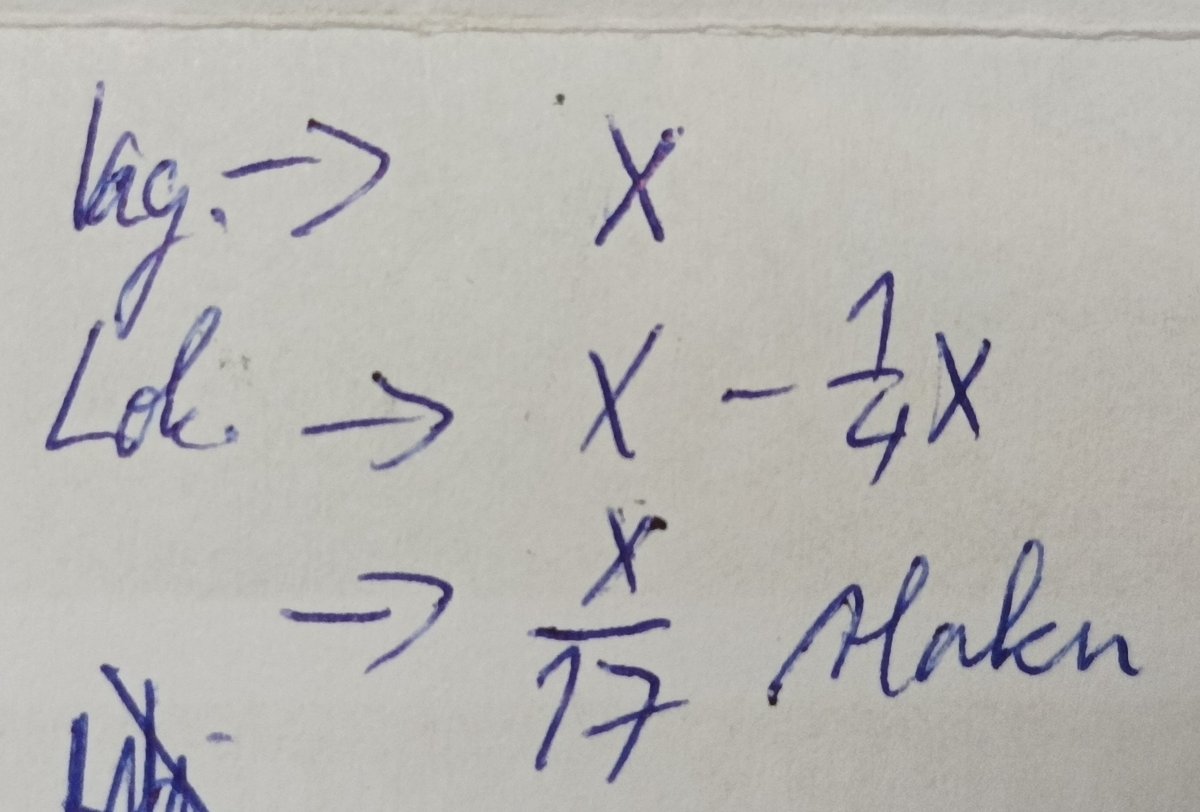 Vag. → x
Lok. → x - 1/4 x
→ x/17 vlaku